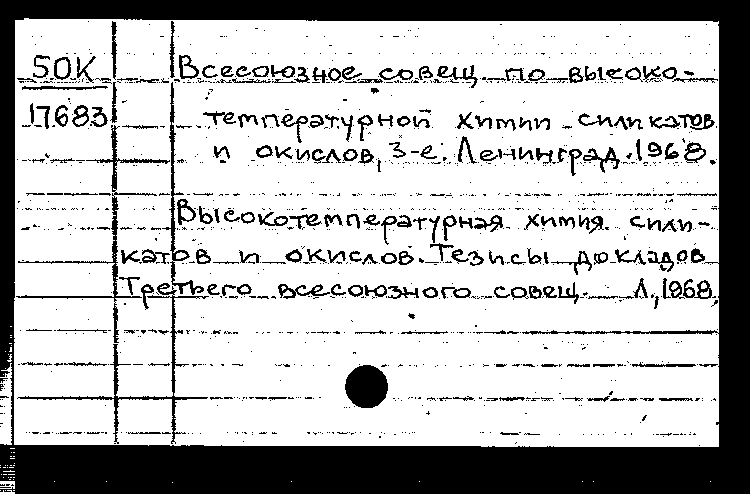 50К Всесоюзное совещ. по высоко-
17683 температурной химии силикатов
и окислов, 3-е. Ленинград. 1968.
Высокотемпературная химия сили-
катов и окислов. Тезисы докладов
Третьего всесоюзного совещ. Л., 1968,